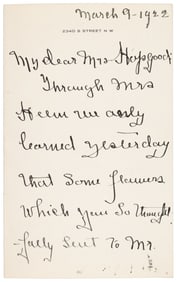 March 9-1922
2340 S STREET N W
My dear Mrs Hapgood:
Through Mrs
we only
learned yesterday
that some flowers
which you so thought
-fully sent to Mr.